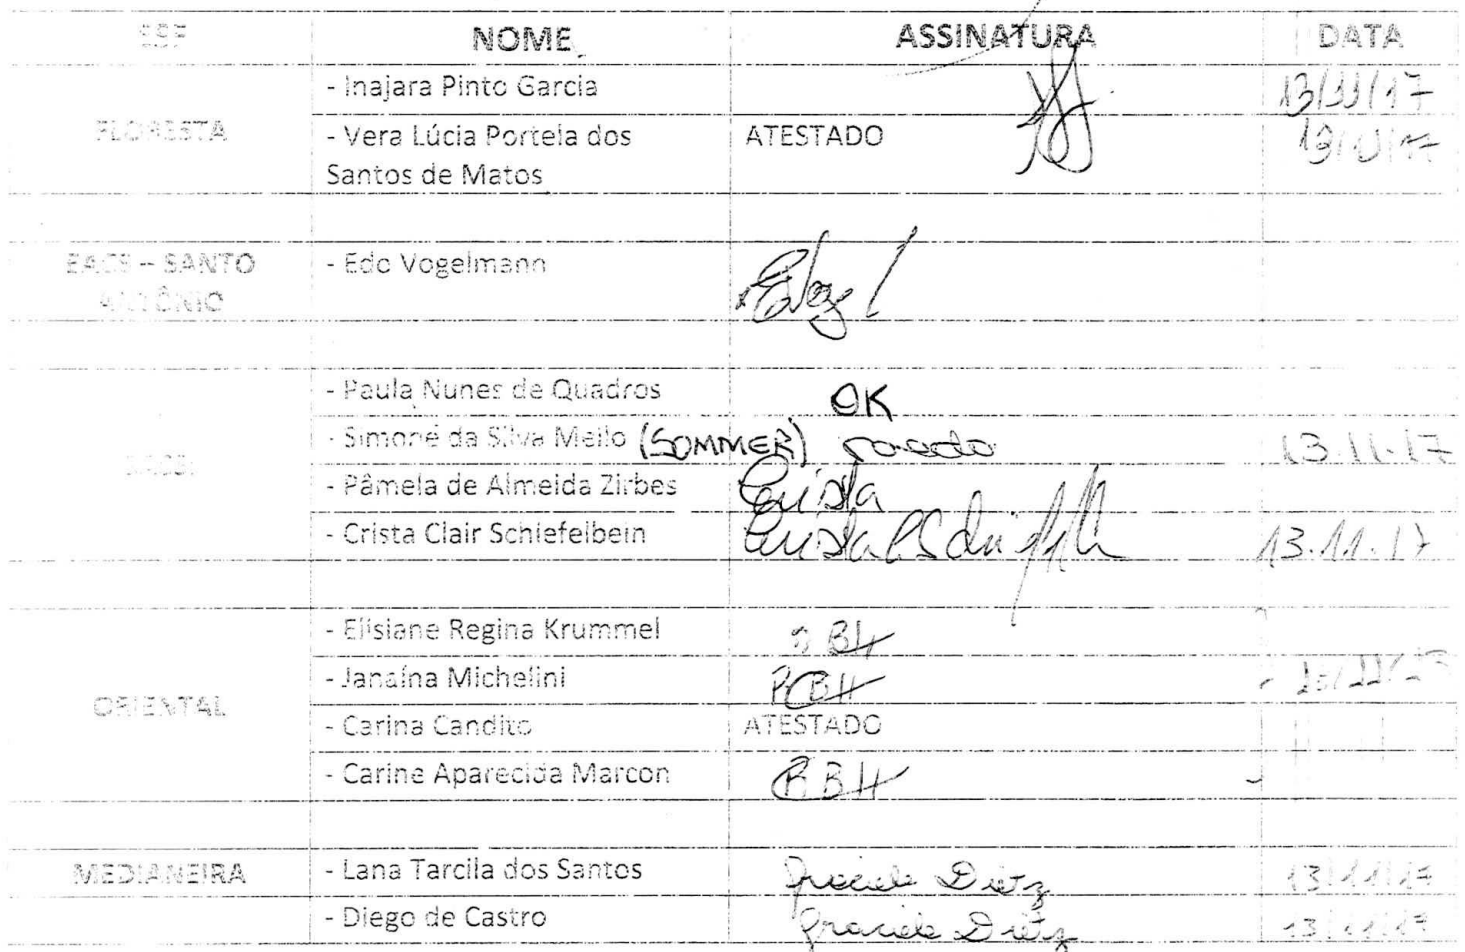 ESF NOME ASSINATURA DATA
- Inajara Pinto Garcia 13/11/17
FLORESTA
- Vera Lúcia Portela dos ATESTADO 13/11/17
Santos de Matos
EACS – SANTO - Edo Vogelmann
ANTÔNIO
- Paula Nunes de Quadros OK
- Simone da Silva Mello (SOMMER) 13.11.17
- Pâmela de Almeida Zirbes Crista
- Crista Clair Schiefelbein Crista 13.11.17
- Elisiane Regina Krummel
- Janaína Michelini
ORIENTAL
- Carina Candito ATESTADO
- Carine Aparecida Marcon
MEDIANEIRA - Lana Tarcila dos Santos Graciele Dietz 13/11/17
- Diego de Castro Graciele Dietz 13/11/17